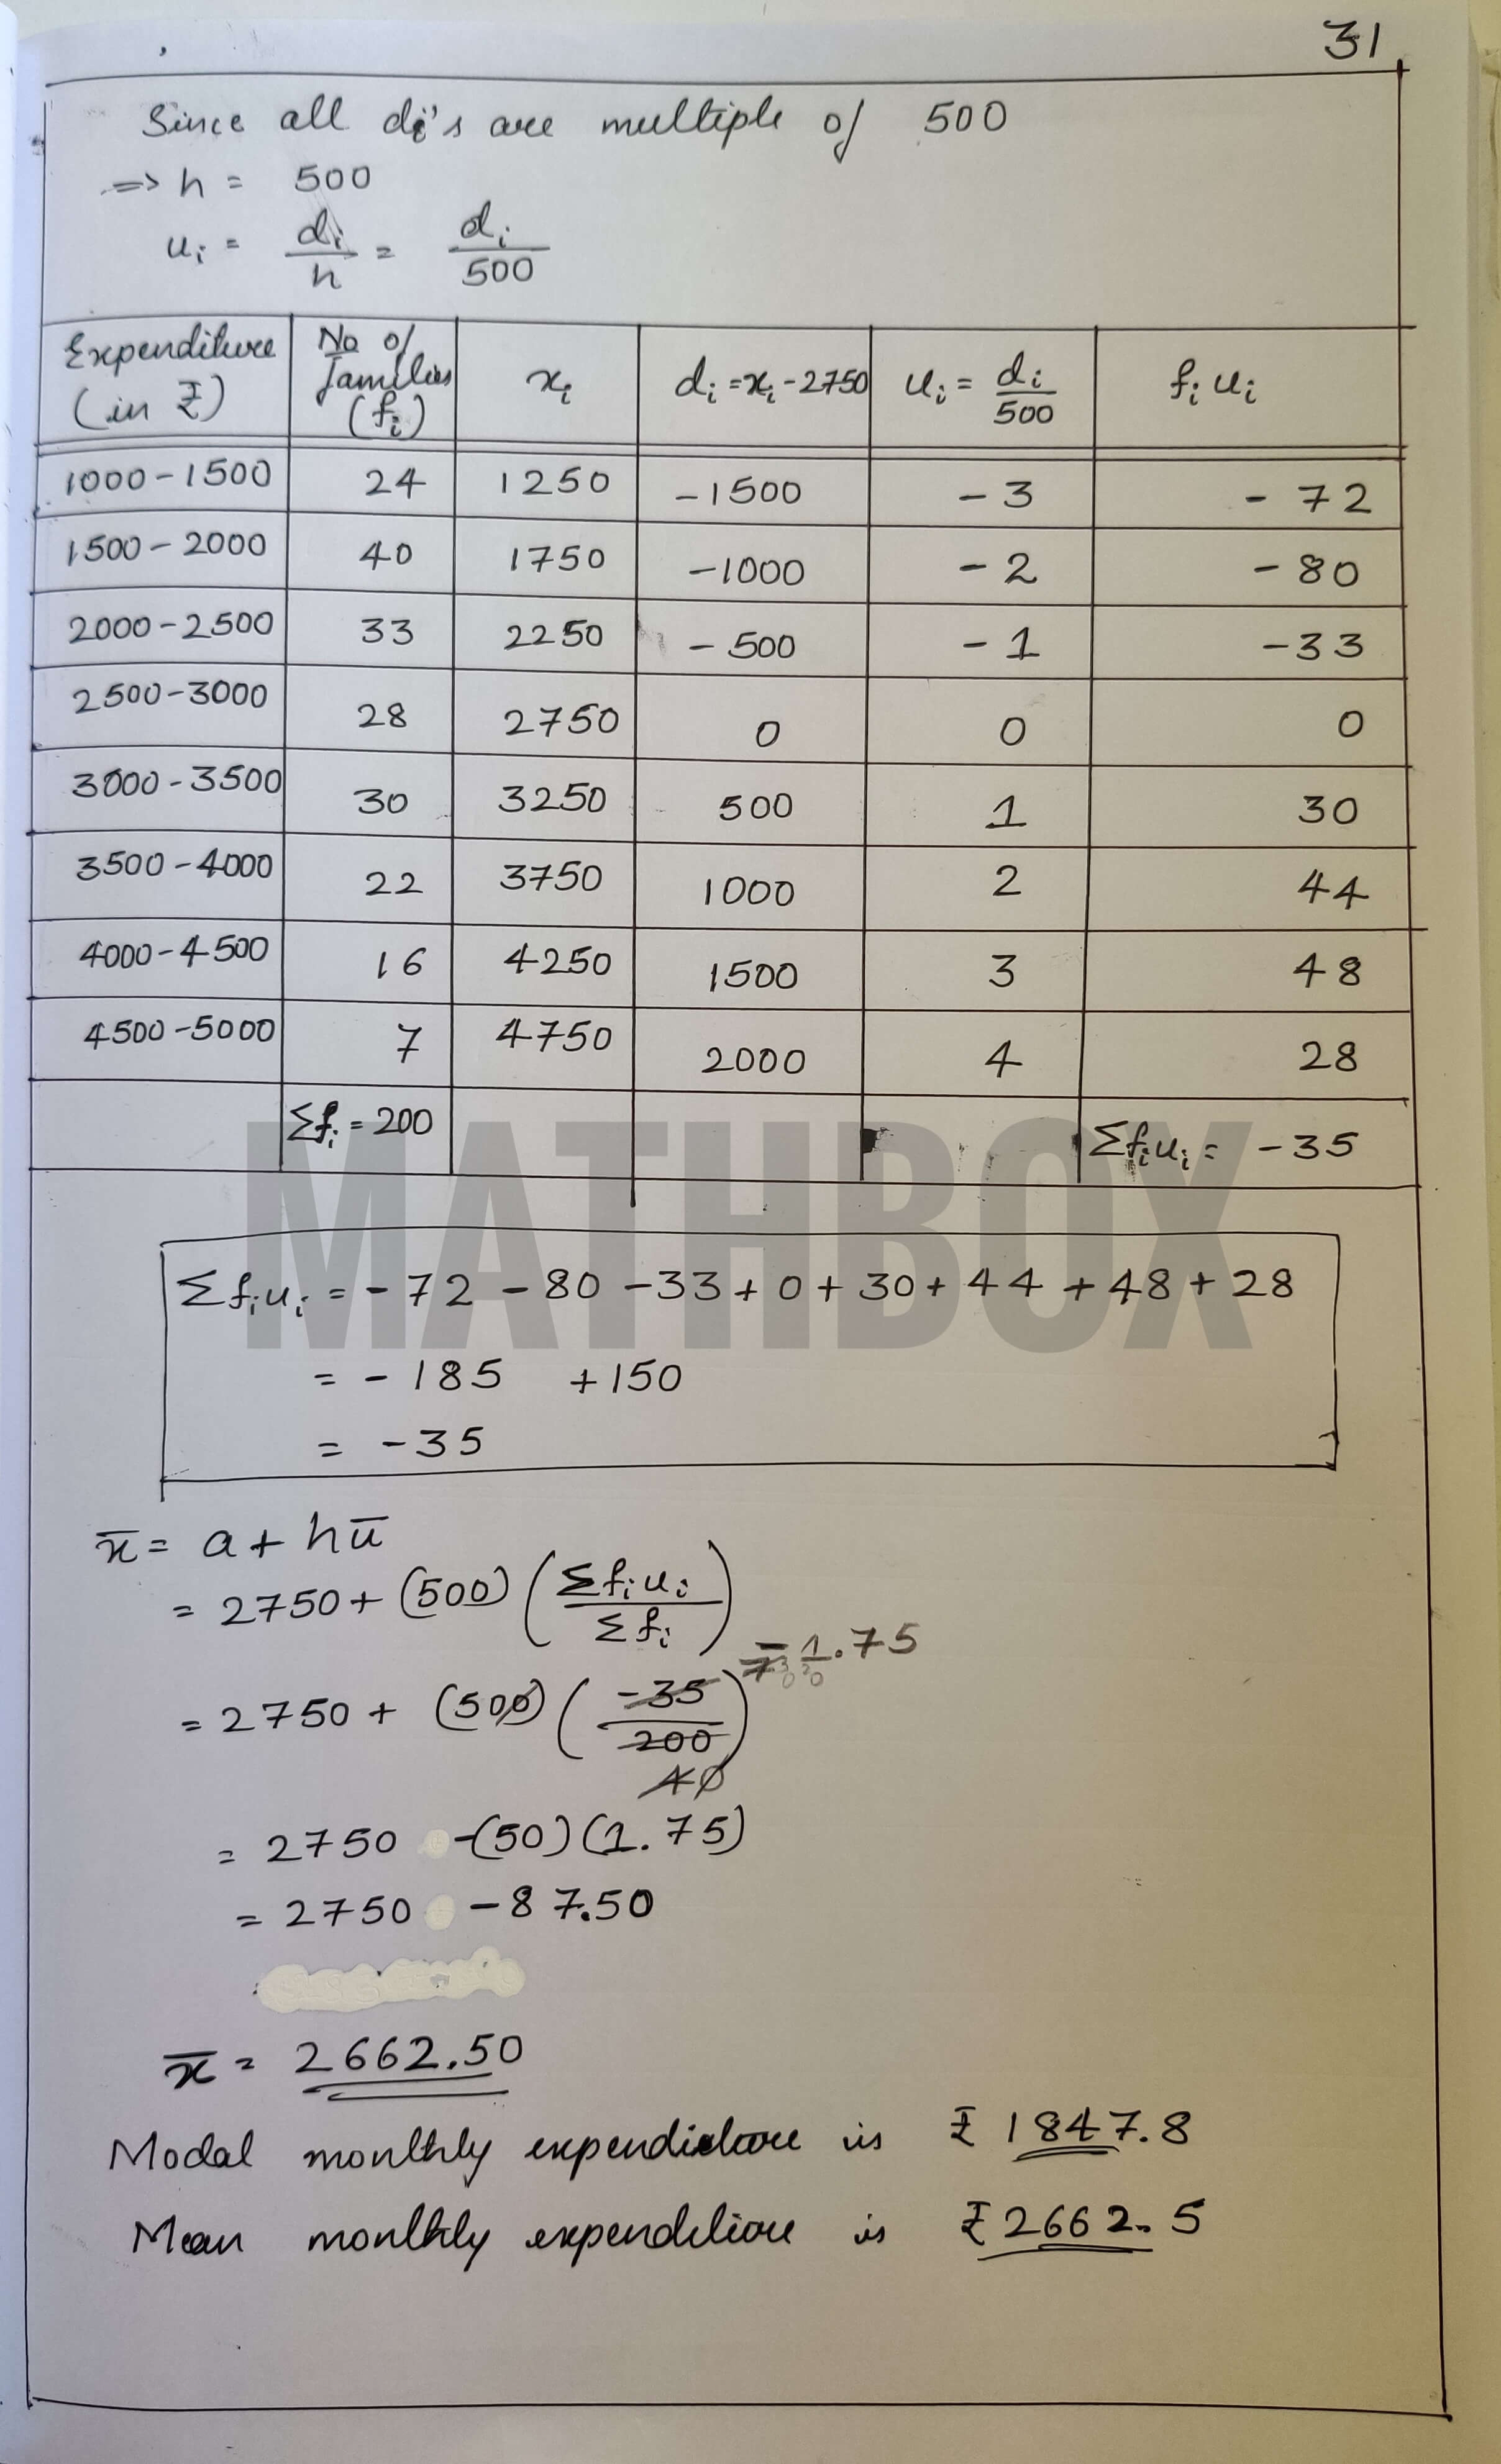 31
Since all di's are multiple of 500
=> h = 500
ui = di/h = di/500
Expenditure (in ₹) | No of families (fi) | xi | di = xi - 2750 | ui = di/500 | fi ui
1000-1500 | 24 | 1250 | -1500 | -3 | -72
1500-2000 | 40 | 1750 | -1000 | -2 | -80
2000-2500 | 33 | 2250 | -500 | -1 | -33
2500-3000 | 28 | 2750 | 0 | 0 | 0
3000-3500 | 30 | 3250 | 500 | 1 | 30
3500-4000 | 22 | 3750 | 1000 | 2 | 44
4000-4500 | 16 | 4250 | 1500 | 3 | 48
4500-5000 | 7 | 4750 | 2000 | 4 | 28
Σfi = 200 | Σfiui = -35
MATHBOX
Σfiui = -72 -80 -33 + 0 + 30 + 44 + 48 + 28
= -185 +150
= -35
x̄ = a + hū
= 2750 + (500) (Σfiui/Σfi)
1.75
= 2750 + (500) (-35/200)
40
= 2750 -(50)(1.75)
= 2750 -87.50
x̄ = 2662.50
Modal monthly expenditure is ₹ 1847.8
Mean monthly expenditure is ₹ 2662.5